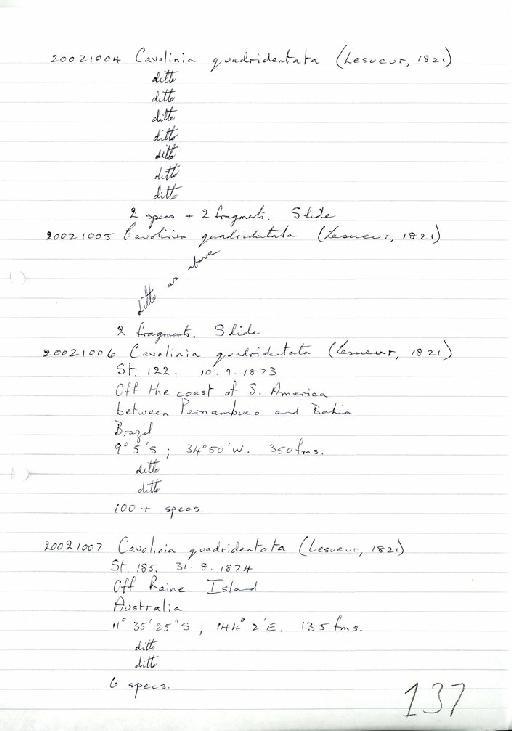 20021004 Cavolinia quadridentata (Lesueur, 1821)
ditto
ditto
ditto
ditto
ditto
ditto
ditto
2 specs + 2 fragments. Slide
20021005 Cavolinia quadridentata (Lesueur, 1821)
ditto as above
2 fragments. Slide
20021006 Cavolinia quadridentata (Lesueur, 1821)
St. 122. 10.9.1873
Off the coast of S. America
between Pernambuco and Bahia
Brazil
9° 5' S ; 34° 50' W. 350 fms.
ditto
ditto
100+ specs
20021007 Cavolinia quadridentata (Lesueur, 1821)
St. 185. 31.8.1874
Off Raine Island
Australia
11° 35' 25" S ; 144° 2' E. 135 fms.
ditto
ditto
6 specs.
137